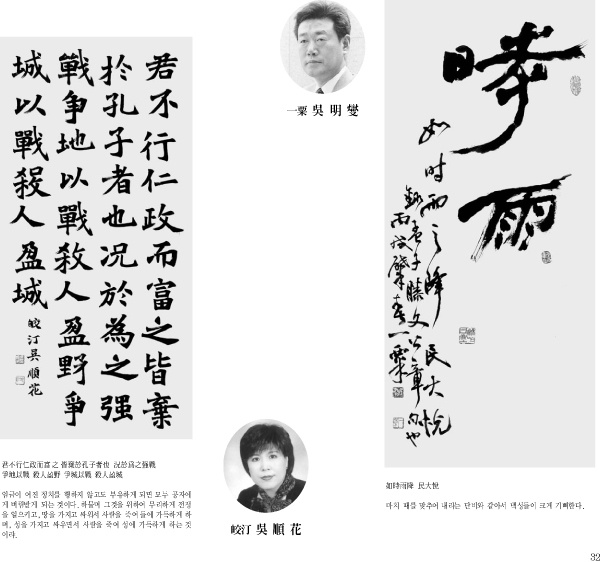 君不行仁政而富之皆棄
於孔子者也况於為之强
戰争地以戰殺人盈野爭
城以戰殺人盈城
皎汀吳順花
君不行仁政而富之 皆棄於孔子者也 況於爲之强戰
爭地以戰 殺人盈野 爭城以戰 殺人盈城
임금이 어진 정치를 행하지 않고도 부유하게 되면 모두 공자에
게 버림받게 되는 것이다. 하물며 그것을 위하여 무리하게 전쟁
을 일으키고, 땅을 가지고 싸워서 사람을 죽여 들에 가득하게 하
며, 성을 가지고 싸우면서 사람을 죽여 성에 가득하게 하는 것
이랴.
一粟 吳明燮
皎汀 吳順花
時雨
如时雨之降民大悅
錄孟子滕文公章句也
丙戌肇春一粟
如時雨降 民大悅
마치 때를 맞추어 내리는 단비와 같아서 백성들이 크게 기뻐한다.
32